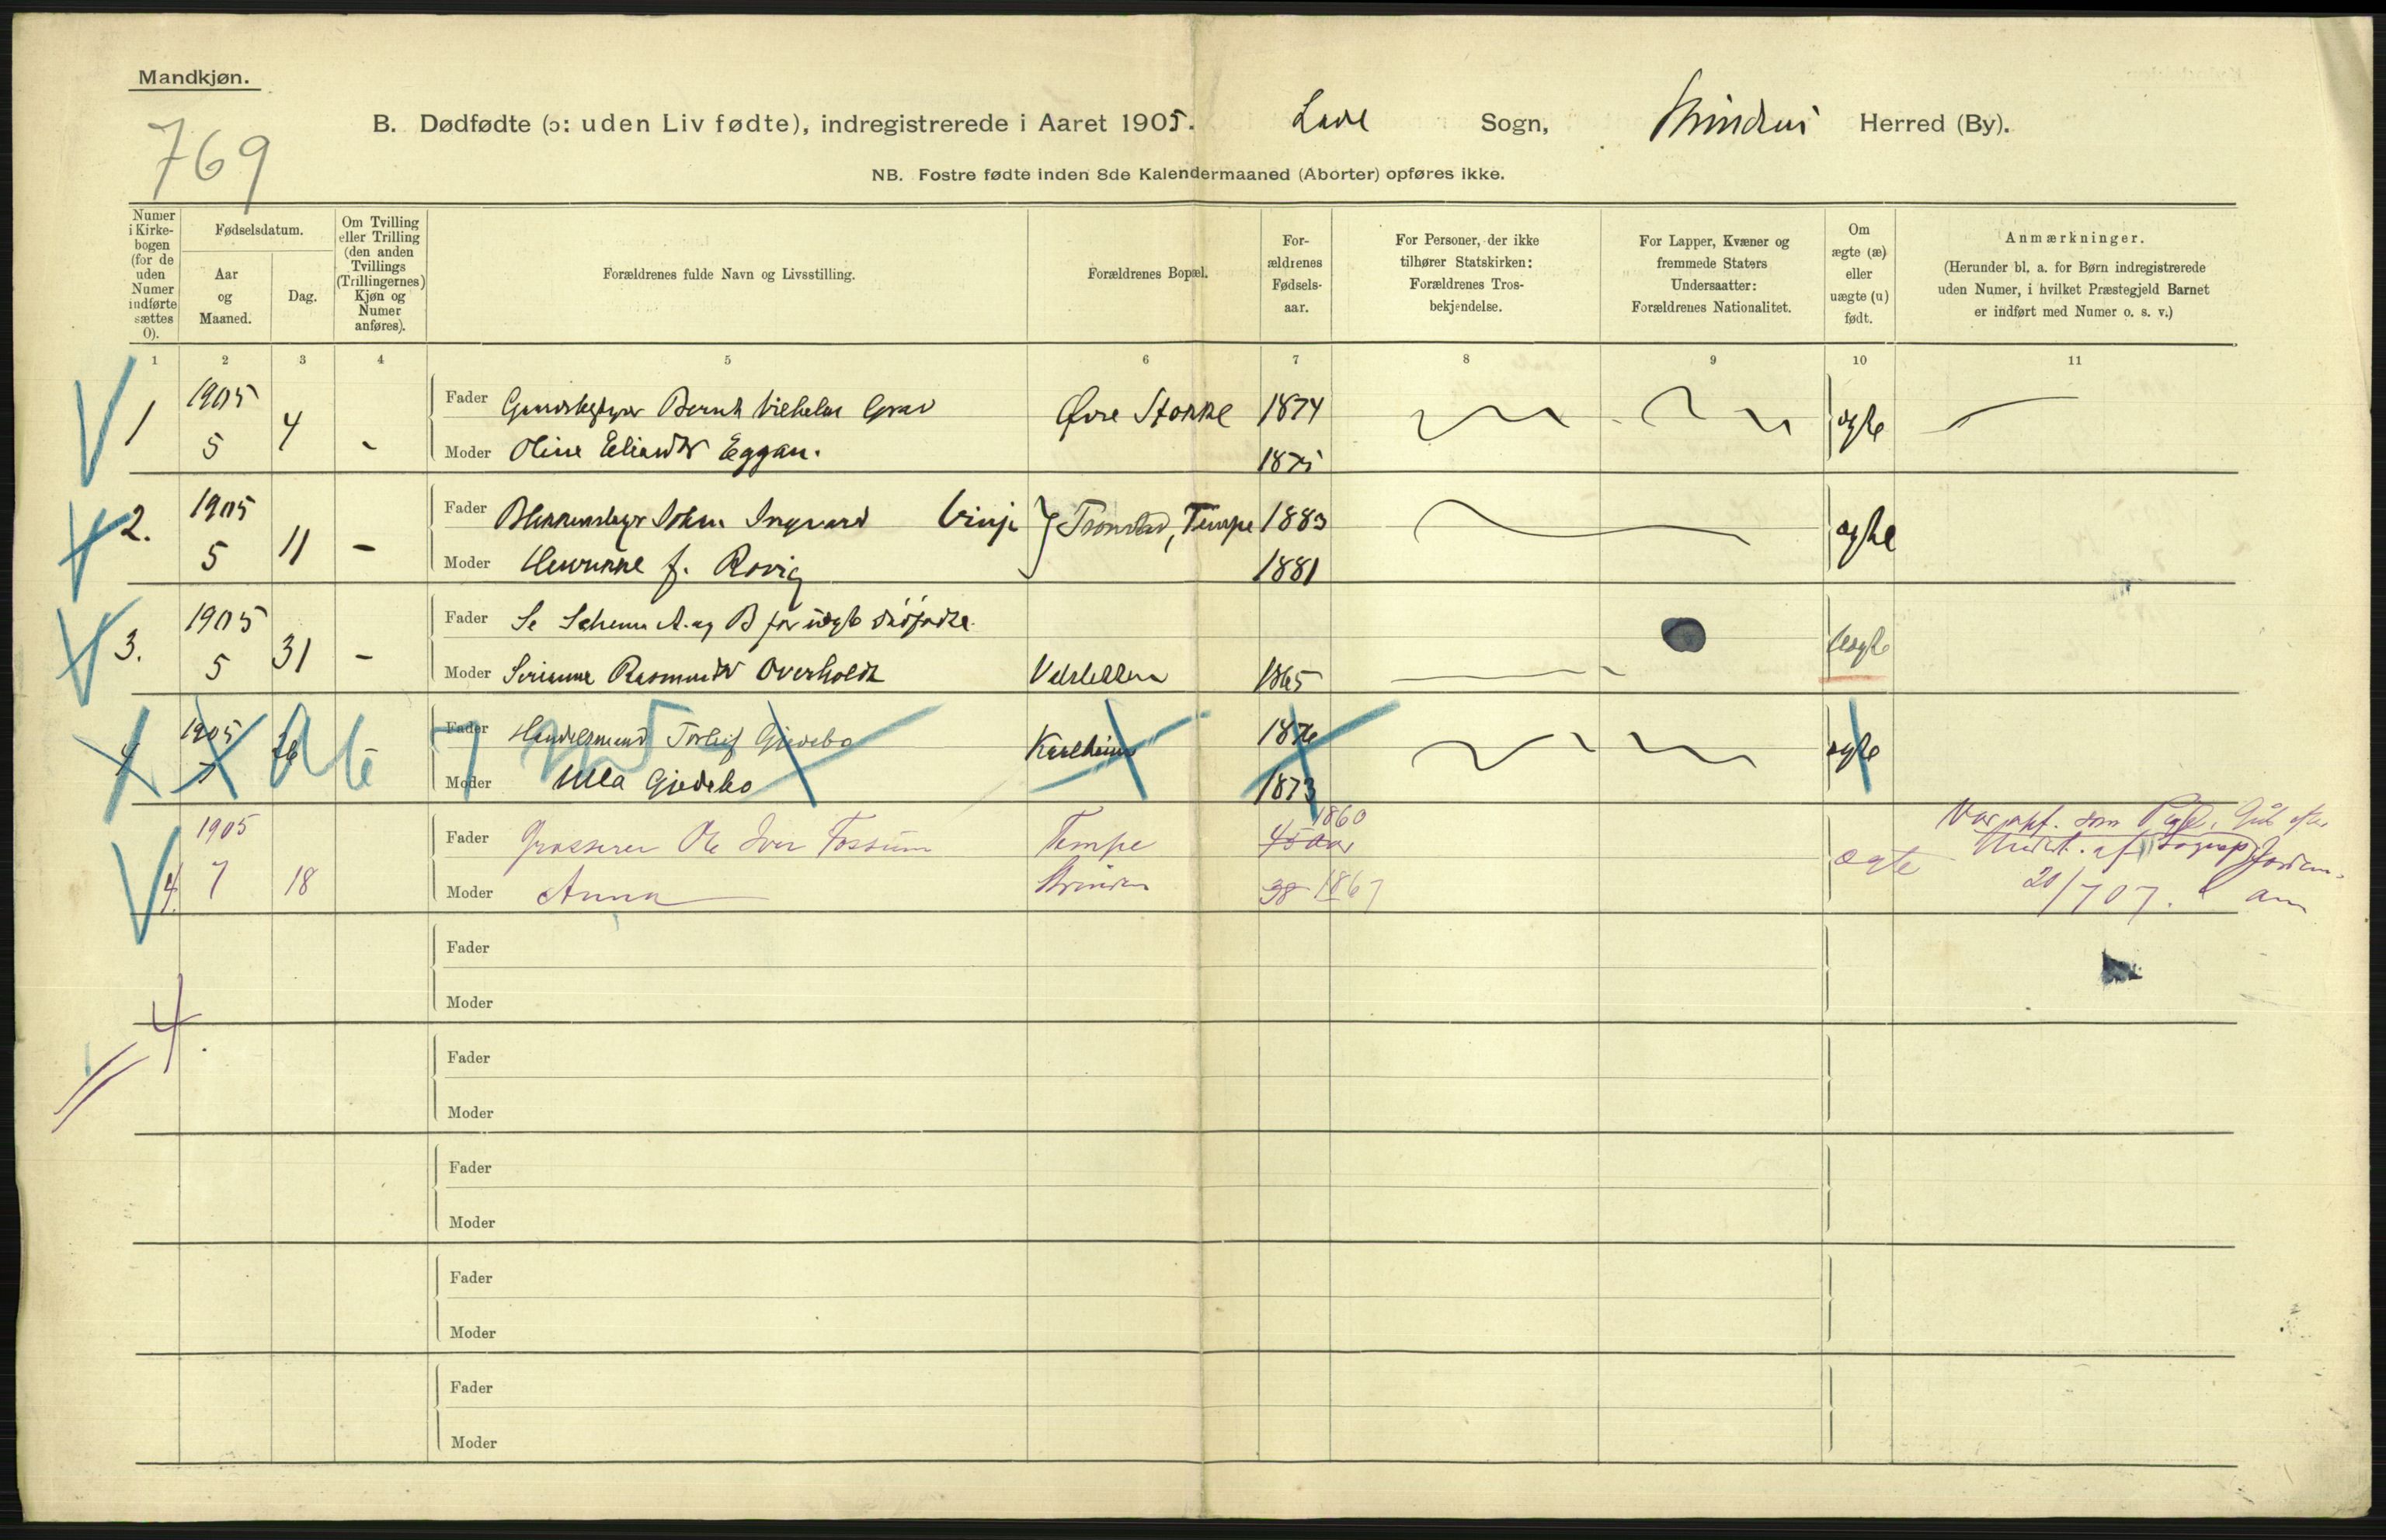 Mandkjøn.
769
B. Dødfødte (ɔ: uden Liv fødte), indregistrerede i Aaret 1905. Lade Sogn, Strinden Herred (By).
NB. Fostre fødte inden 8de Kalendermaaned (Aborter) opføres ikke.
Numer i Kirkebogen (for de uden Numer indførte sættes 0).
Fødselsdatum.
Aar og Maaned.
Dag.
Om Tvilling eller Trilling (den anden Tvillings (Trillingernes) Kjøn og Numer anføres).
Forældrenes fulde Navn og Livsstilling.
Forældrenes Bopæl.
Forældrenes Fødselsaar.
For Personer, der ikke tilhører Statskirken: Forældrenes Trosbekjendelse.
For Lapper, Kvæner og fremmede Staters Undersaatter: Forældrenes Nationalitet.
Om ægte (æ) eller uægte (u) født.
Anmærkninger.
(Herunder bl. a. for Børn indregistrerede uden Numer, i hvilket Præstegjeld Barnet er indført med Numer o. s. v.)
1 2 3 4 5 6 7 8 9 10 11
1 1905 5 4 -
Fader Bernt Vilhelm Grav Øvre Stokke 1874 ægte
Moder Oline Eliasdtr Eggan. 1875
2. 1905 5 11 -
Fader Blikkenslager Johan Ingvard Vinje Tempe 1883 ægte
Moder f. Rovig 1881
3. 1905 5 31 -
Fader Se Schema A. og B for uægte dødfødte.
Moder Rasmusdtr Overholdt 1865 uægte
4 1905 7 26
Fader Handelsmand Torleif Gjedebo Karlheim 1876 ægte
Moder Ulla Gjedebo 1873
4. 1905 7 18
Fader Grosserer Ole Iver Fossum Tempe 45 Aar 1860 ægte
Moder Anna Strinden 38 1867
Var opf. som Pige. efter
af
20/7 07.
4.
Fader
Moder
Fader
Moder
Fader
Moder
Fader
Moder
Fader
Moder